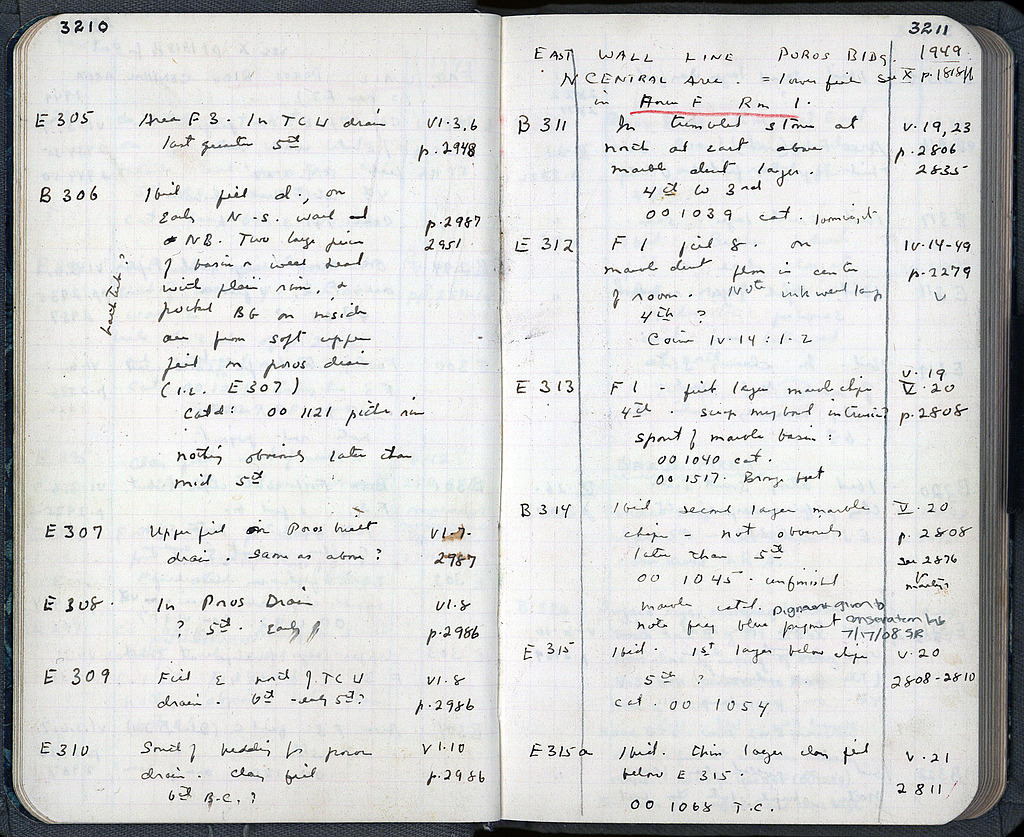 3210
E 305 Area F 3. In TCW drain VI.3,6
last quarter 5th p.2948
B 306 Ibid fill d., on
Early N-S. wall p.2987
NB. Two large pieces 2951
of basin
with plain rim,
pocket BG on inside
are from soft upper
fill in poros drain
(i.e. E307)
Catd: 00 1121
nothing obviously later than
mid 5th
E 307 Upper fill in Poros built VI-7.
drain. Same as above? 2987
E 308. In Poros Drain VI.8
? 5th. Early p.2986
E 309 Fill E and N of TCW VI.8
drain. 6th - early 5th? p.2986
E 310 South of bedding for poros VI.10
drain. clay fill p.2986
6th B.C.?
3211
EAST WALL LINE POROS BLDG. 1949
N CENTRAL AREA. = lower fill See X p.1818ff
in Area F Rm 1.
B 311 In tumbled stone at V.19,23
north at east above p.2806
marble dust layer. 2835
4th to 3rd
00 1039 cat.
E 312 F 1 fill 8. on IV.14-49
marble dust floor in center p.2279
of room. Note
4th ?
Coin IV.14:1-2
V.19
E 313 F1 - first layer marble chips V.20
4th. scrap meg bowl intrusion? p.2808
spout of marble basin:
00 1040 cat.
00 1517. Bronze
B 314 Ibid second layer marble V.20
chips - not obviously p.2808
later than 5th see 2876
00 1045. unfinished
marble catd. pigment given to
note blue pigment conservation lab
7/7/08 SR
E 315 Ibid. 1st layer below chips V.20
5th ? 2808-2810
cat. 00 1054
E 315a Ibid. thin layer clay fill V.21
below E 315. 2811
00 1068 T.C.